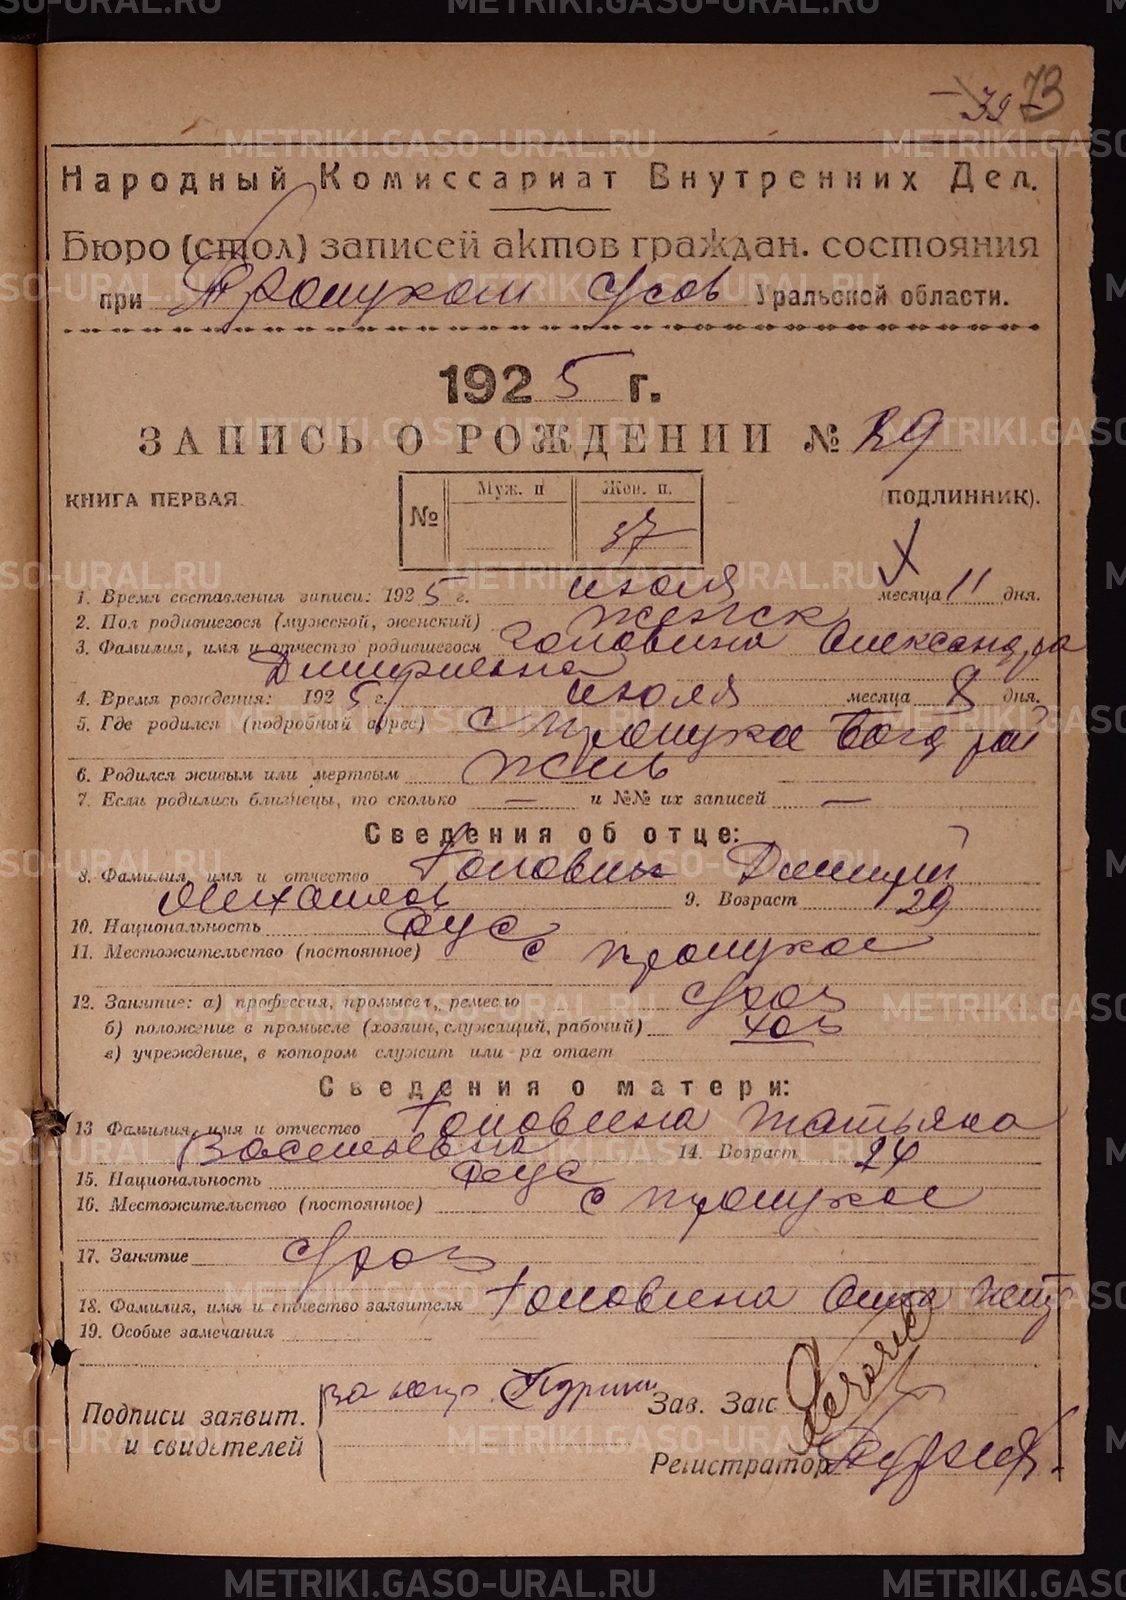 73
Народный Комиссариат Внутренних Дел.
Бюро (стол) записей актов граждан. состояния
при Троицком с/сов Уральской области.
1925 г.
ЗАПИСЬ О РОЖДЕНИИ № 89
КНИГА ПЕРВАЯ. (ПОДЛИННИК).
№ Муж. п Жен. п.
37
1. Время составления записи: 1925 г. июля месяца 11 дня.
2. Пол родившегося (мужской, женский) женск
3. Фамилия, имя и отчество родившегося Головина Александра
Дмитриевна
4. Время рождения: 1925 г. июля месяца 8 дня.
5. Где родился (подробный адрес) с Троицкое Богд рай
6. Родился живым или мертвым жив
7. Если родились близнецы, то сколько — и №№ их записей —
Сведения об отце:
8. Фамилия, имя и отчество Головин Дмитрий
Михайлов 9. Возраст 29
10. Национальность Рус
11. Местожительство (постоянное) с Троицкое
12. Занятие: а) профессия, промысел, ремесло с/хоз
б) положение в промысле (хозяин, служащий, рабочий) хоз
в) учреждение, в котором служит или ра отает
Сведения о матери:
13 Фамилия, имя и отчество Головина Татьяна
Васильевна 14. Возраст 24
15. Национальность Рус
16. Местожительство (постоянное) с Троицкое
17. Занятие с/хоз
18. Фамилия, имя и отчество заявителя Головина
19. Особые замечания
Подписи заявит. и свидетелей за негр.
Зав. Загс
Регистратор
METRIKI.GASO-URAL.RU